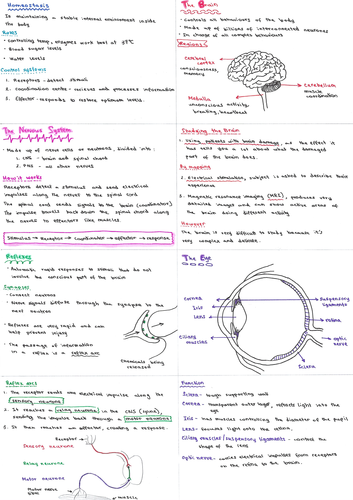 Homeostasis
Is maintaining a stable internal environment inside
the body
Roles
• Controlling temp, enzymes work best at 37°C
• Blood sugar levels
• Water levels
Control systems
1. Receptors - detect stimuli
2. Coordination centre - recieves and processes information
3. Effector - responds to restore optimum levels.
The Brain
• Controls all behaviours of the body
• Made up of billions of interconnected neurones
• In charge of all complex behaviours
Regions:
Cerebral
cortex
consciousness,
memory
Cerebellum
muscle
coordination
Medulla
unconscious activity,
breathing, heartbeat
The Nervous System
• Made up of nerve cells or neurones, divided into:
1. CNS - brain and spinal chord
2. PNS - all other nerves
How it works
Receptors detect a stimulus and send electrical
impulses along the nerves to the spinal cord.
The spinal cord sends signals to the brain (coordinator)
The impulse travels back down the spinal chord along
the nerves to effectors like muscles.
Stimulus → Receptor → Coordinator → effector → response
Studying the Brain
1. Using patients with brain damage, see the effect it
has
part of the brain does.
By mapping
2. Electrical stimulation, subject is asked to describe their
experience
3. Magnetic resonance imaging (MRI), produces very
detailed images and can show active areas of
the brain during different activity
However
The brain is very difficult to study because it's
very complex and delicate.
Reflexes
• Automatic, rapid responses to stimuli that do not
involve the conscious part of the brain
Synapses
• Connect neurons
• Nerve signals diffuse through the synapse to the
next neuron
• Reflexes are very rapid and can
help prevent injury
• The passage of information
in a reflex is a reflex arc
Chemicals being
released
The Eye
Cornea
Iris
Lens
Ciliary
muscles
Suspensory
ligaments
retina
Optic
nerve
Sclera
Reflex arcs
1. The receptor sends an electrical impulse along the
sensory neurone
2. It reaches a relay neurone in the CNS (spine),
sending the impulse back through a motor neurone
3. It then reaches an effector, creating a response
Receptor
Sensory neurone
Relay neurone
Motor neurone
muscle
Function
Sclera - tough supporting wall
Cornea - transparent outer layer, reflects light into the
eye
Iris - has muscles controlling the diameter of the pupil
Lens - focuses light onto the retina,
Ciliary muscles/suspensory ligaments - control the
shape of the lens
Optic nerve - carries electrical impulses from receptors
on the retina to the brain.